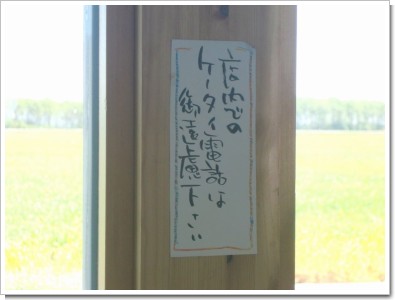 店内での
ケータイ電話は
御遠慮下さい